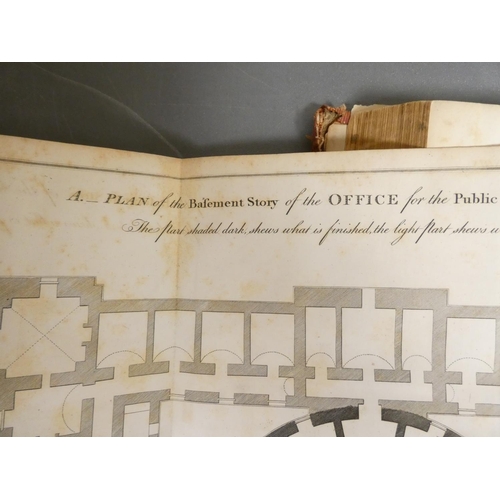 A. — PLAN of the Baſement Story of the OFFICE for the Public
The part shaded dark, shews what is finished, the light part shews w